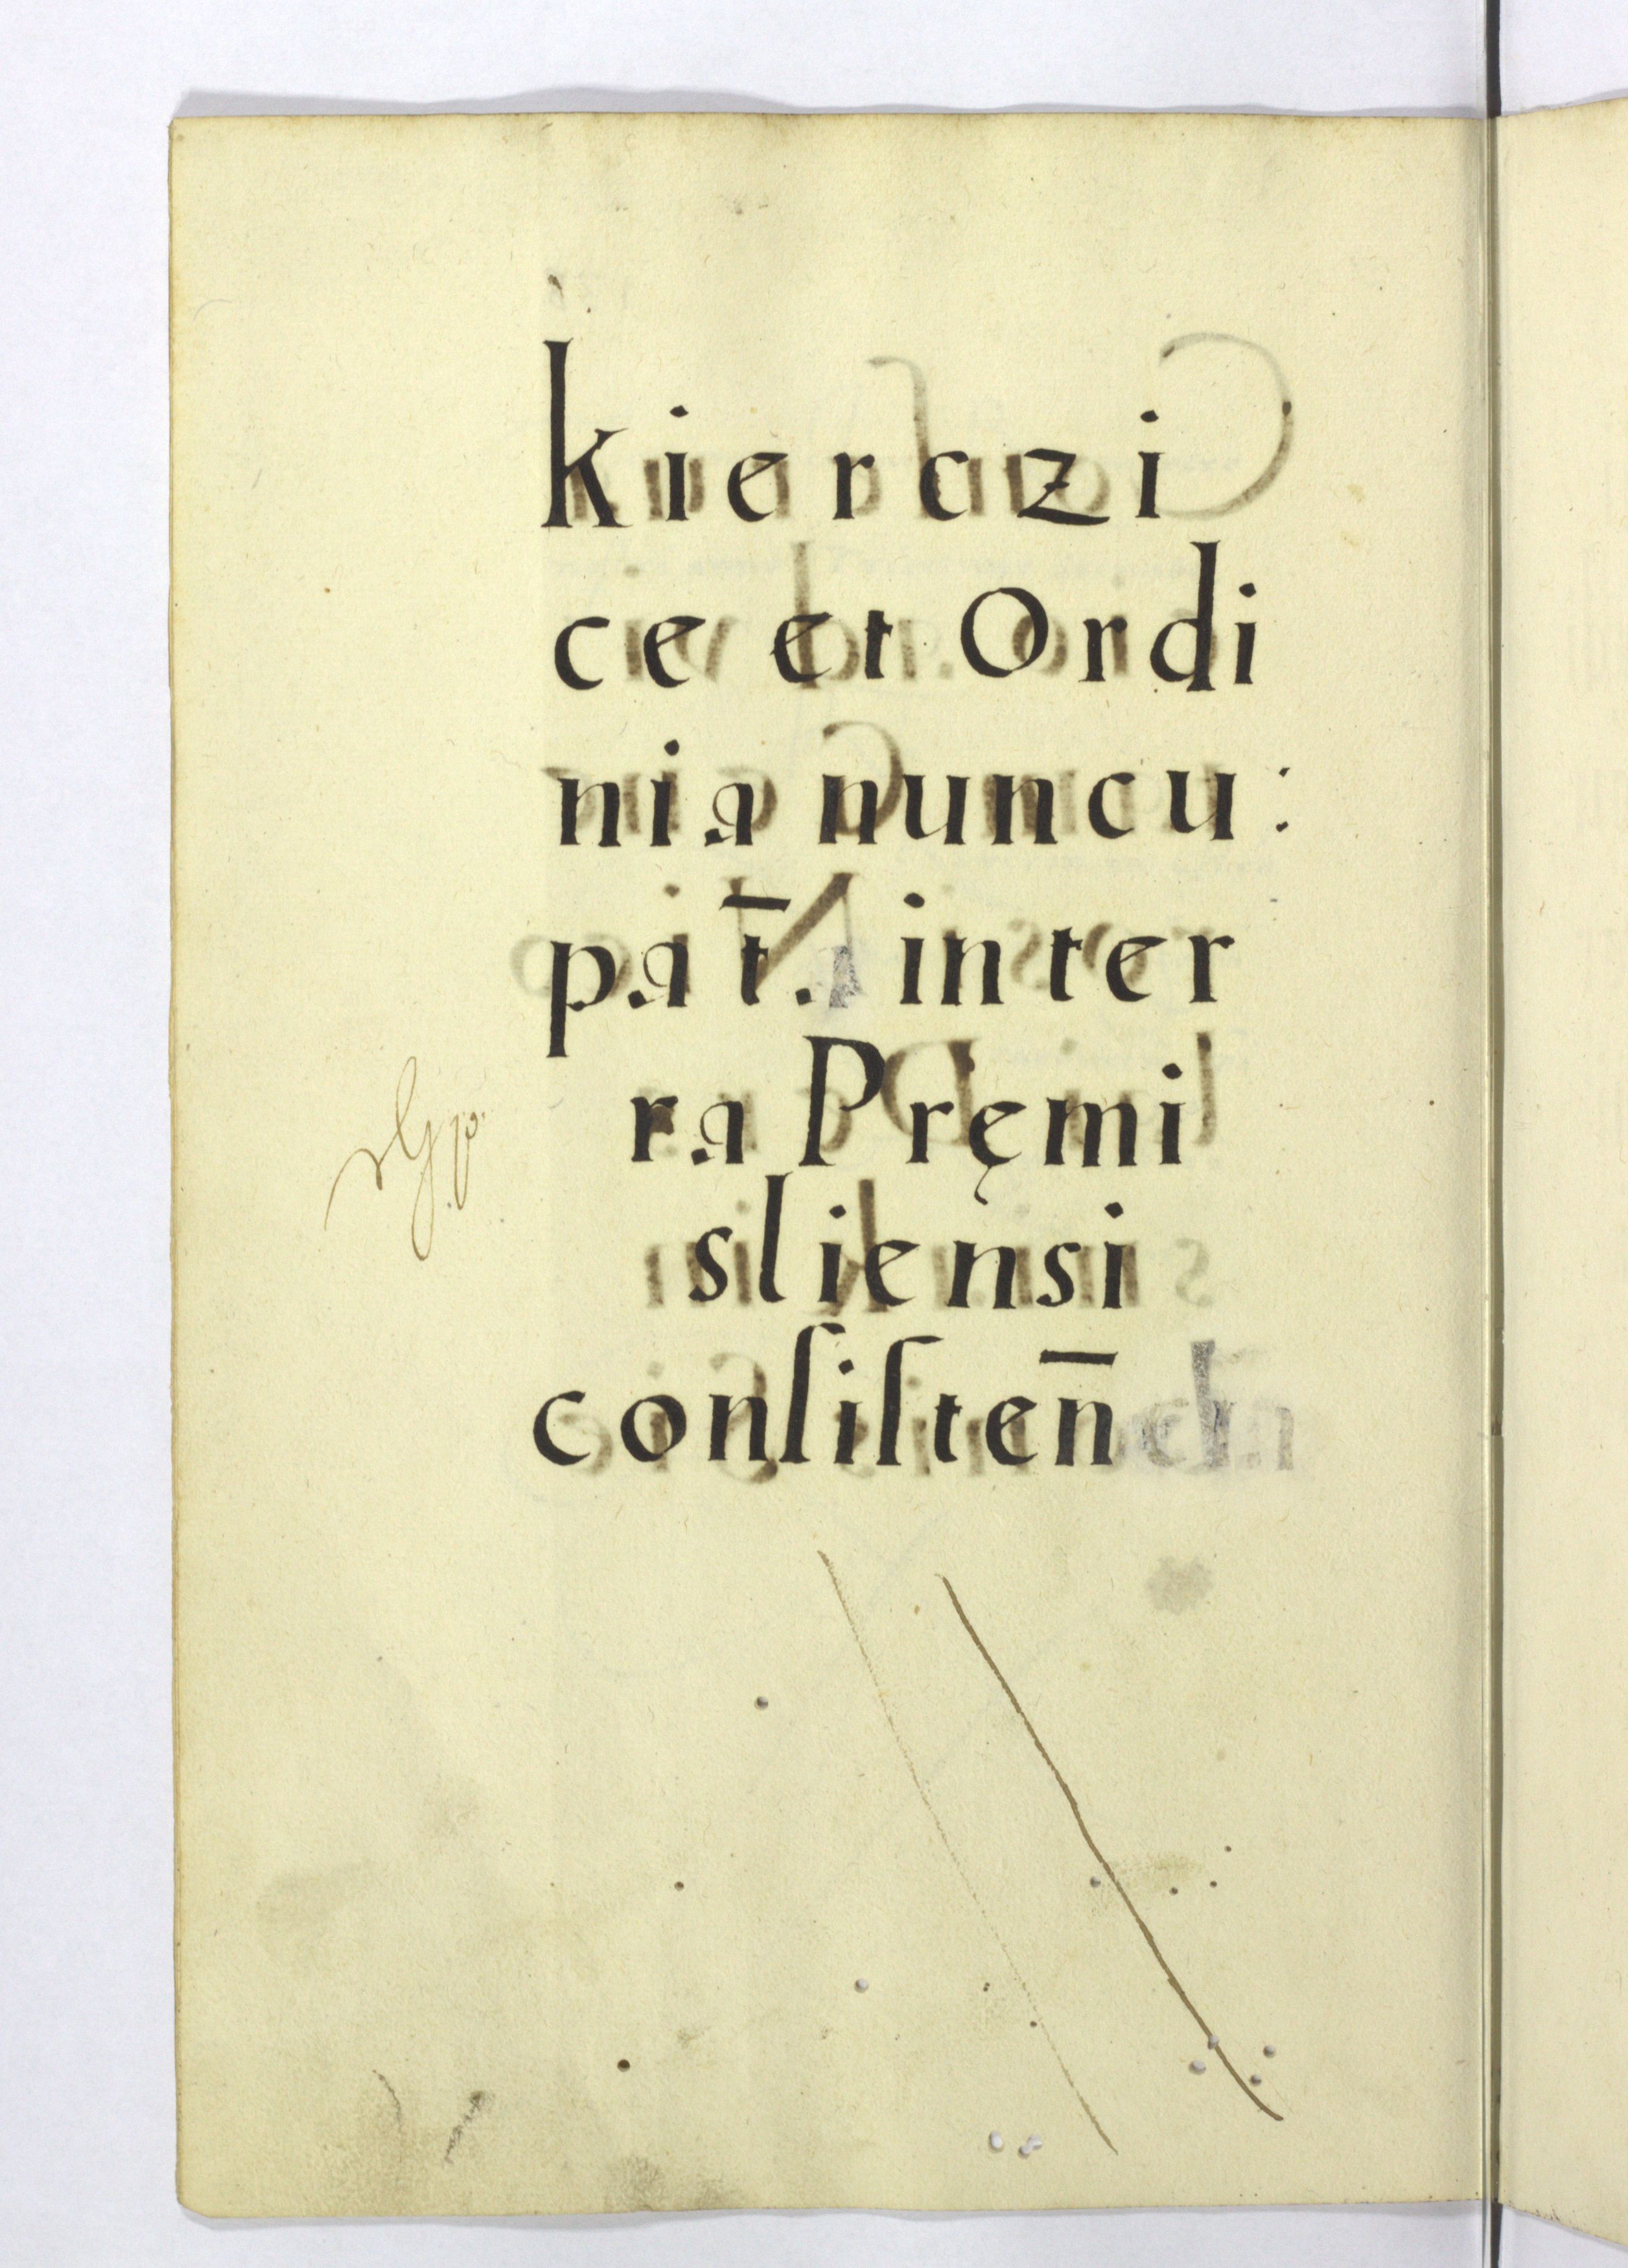 kierczi
ce et Ordi
nia nuncu:
pat̄. in ter
ra Pręmi
sliensi
conſiſten̄